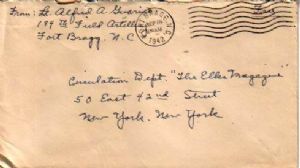 From Lt. Alfred A.
184th Field Artillery
Fort Bragg, N.C
1942
Circulation Dept. "The Elks Magazine"
50 East 42nd Street
New York, New York